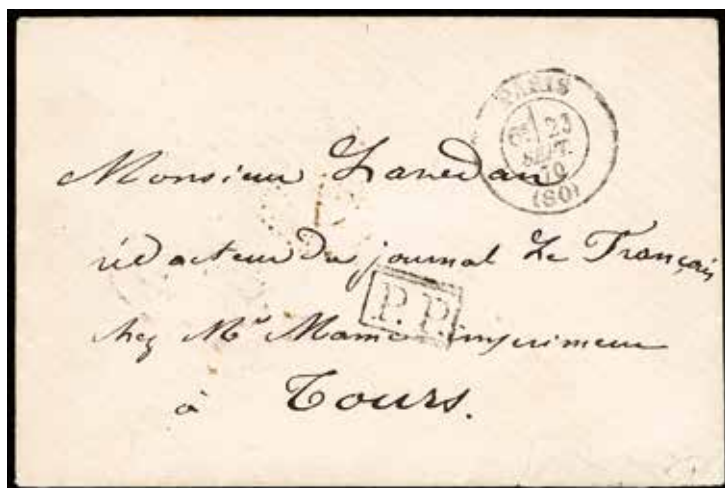 PARIS
6E 23
SEPT.
70
(SO)
Monsieur Lavedan
rédacteur du journal Le Français
P.P.
chez Mr Mame imprimeur
à Tours.